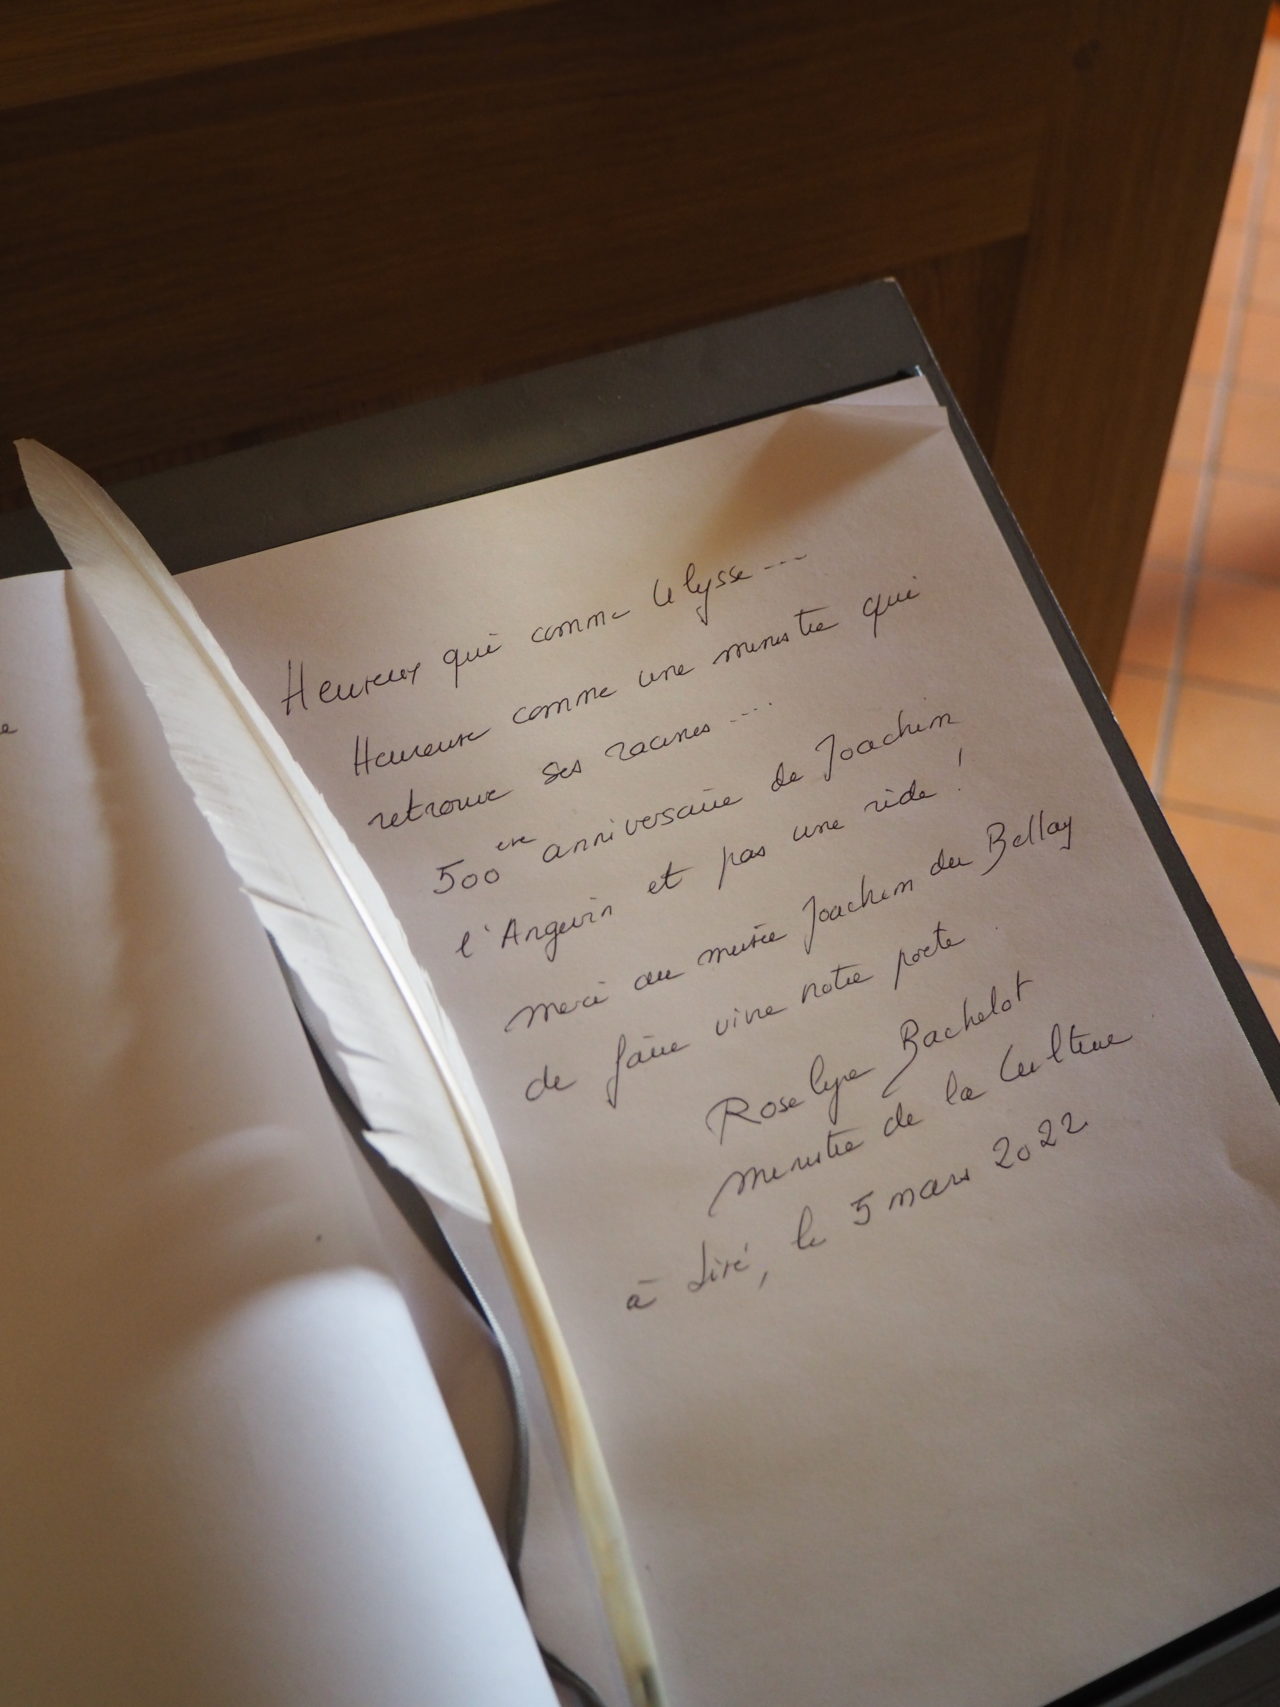 Heureux qui comme Ulysse ...
Heureuse comme une ministre qui
retrouve ses racines ....
500ère anniversaire de Joachim
l'Angevin et pas une ride !
merci au musée Joachim du Bellay
de faire vivre notre poète.
Roselyne Bachelot
ministre de la Culture
à Liré, le 5 mars 2022